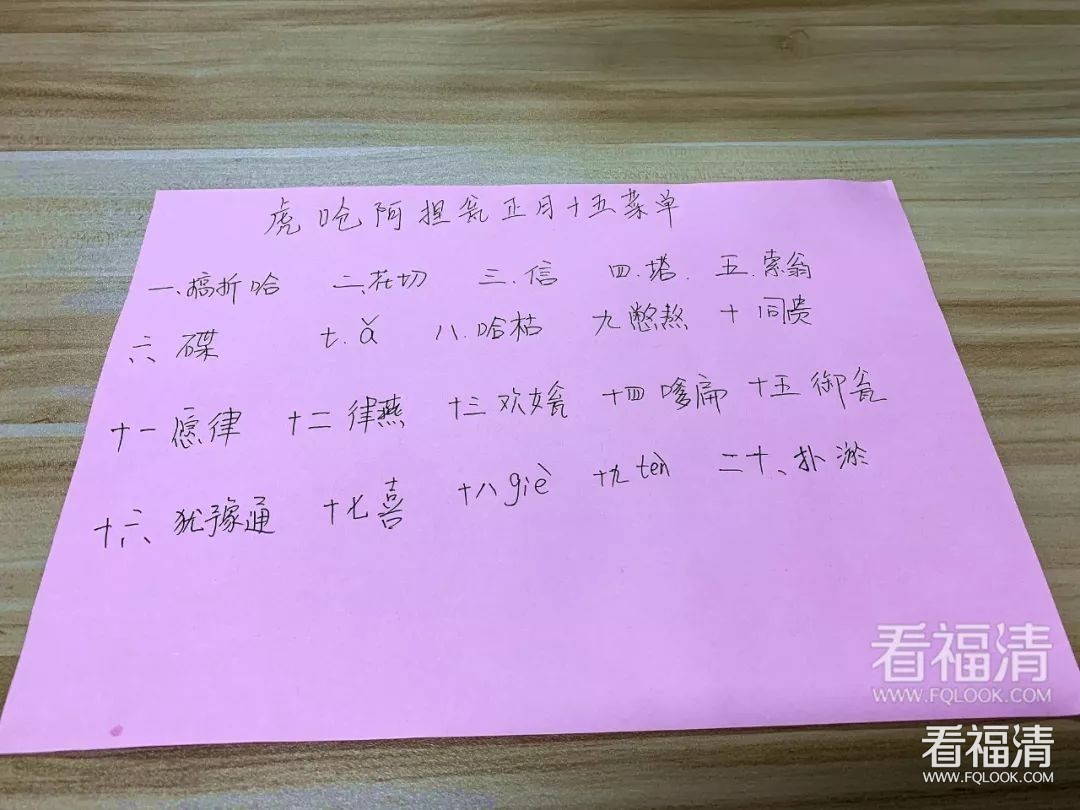 虎呛阿捏瓮正月十五菜单
一、搞折哈 二、花切 三.信 四.塔. 五.索翁
六、碟 七.ǎ 八.哈枯 九憋熬 十同贵
十一愿律 十二律燕 十三欢 十四嗲扁 十五御瓮
十六、犹豫通 十七喜 十八giè 十九tèn 二十、扑淤
看福清
WWW.FQLOOK.COM
看福清
WWW.FQLOOK.COM